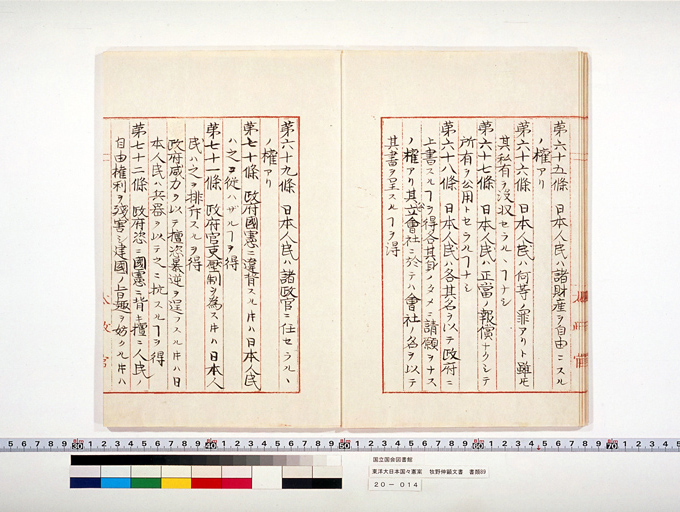 第六十五條 日本人民ハ諸財産ヲ自由ニスル
ノ權アリ
第六十六條 日本人民ハ何等ノ罪アリト雖𪜈
其私有ヲ没収セラルヽヿナシ
第六十七條 日本人民ハ正當ノ報償ナクシテ
所有ヲ公用トセラルヿナシ
第六十八條 日本人民ハ各其名ヲ以テ政府ニ
上書スルヿヲ得各其身ノタメニ請願ヲナス
ノ權アリ其公立會社ニ於テハ會社ノ名ヲ以テ
其書ヲ呈スルヿヲ得
第六十九條 日本人民ハ諸政官ニ任セラルヽ
ノ權アリ
第七十條 政府國憲ニ違背スル片ハ日本人民
ハ之ニ從ハザルヿヲ得
第七十一條 政府官吏壓制ヲ為ス片ハ日本人
民ハ之ヲ排斥スルヲ得
政府威力ヲ以テ擅恣暴逆ヲ逞フスル片ハ日
本人民ハ兵器ヲ以テ之ニ抗スルヿヲ得
第七十二條 政府恣ニ國憲ニ背キ擅ニ人民ノ
自由權利ヲ殘害シ建國ノ旨趣ヲ妨クル片ハ
太政官
5 6 7 8 9 30 1 2 3 4 5 6 7 8 9 40 1 2 3 4 5 6 7 8 9 50 1 2 3 4 5 6 7 8 9 60 1 2 3 4 5 6 7 8 9 70 1 2 3 4 5
国立国会図書館
東洋大日本国々憲案 牧野伸顕文書 書類89
20-014